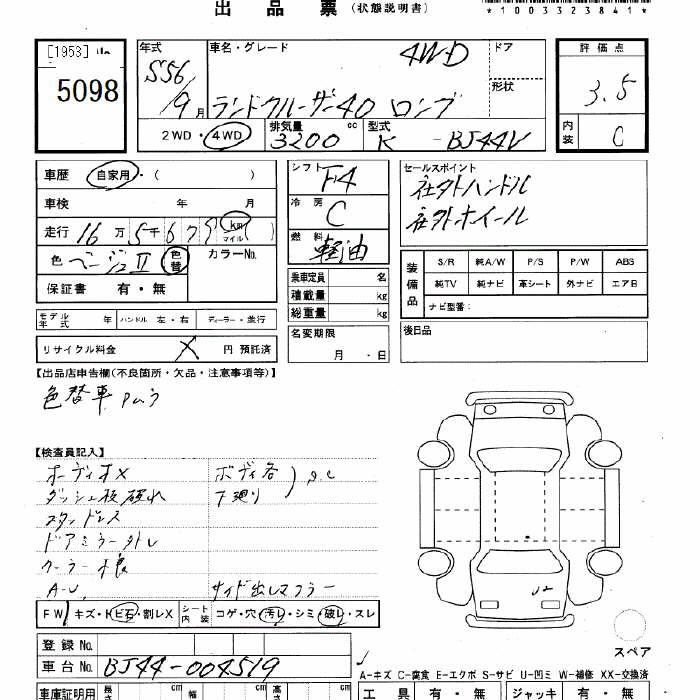 出品票 (状態説明書)
*1003323841*
[1953]
5098
年式 S56/9月
車名・グレード 4WD
ランドクルーザー40 ロング
ドア
形状
2WD・4WD 排気量 3200 cc 型式 K-BJ44V
評価点 3.5
内装 C
車歴 自家用・( )
車検 年 月
走行 16万5千67 km マイル ( )
色 ベージュII 色替 カラーNo.
保証書 有・無
シフト F4
冷房 C
燃料 軽油
乗車定員 名
積載量 kg
総重量 kg
セールスポイント
社外ハンドル
社外ホイール
装備品
S/R 純A/W P/S P/W ABS
純TV 純ナビ 革シート 外ナビ エアB
ナビ型番:
モデル年式 年 ハンドル 左・右 ディーラー・並行
名変期限 月・日
後日品
リサイクル料金 円 預託済
【出品店申告欄(不良箇所・欠品・注意事項等)】
色替車 Pムラ
【検査員記入】
オーディオX ボディ各
ダッシュ板破れ 下廻り S.C
スタッドレス
ドアミラー外し
クーラー不良
A-U, サイド出しマフラー
U2
FW キズ・ヒビ石・割レX シート内装 コゲ・穴・汚レ・シミ・破レ・スレ
スペア
登録No.
車台No. BJ44-004519
A-キズ C-腐食 E-エクボ S-サビ U-凹ミ W-補修 XX-交換済
車庫証明用 長さ cm 幅 cm 高さ cm
工具 有・無 ジャッキ 有・無